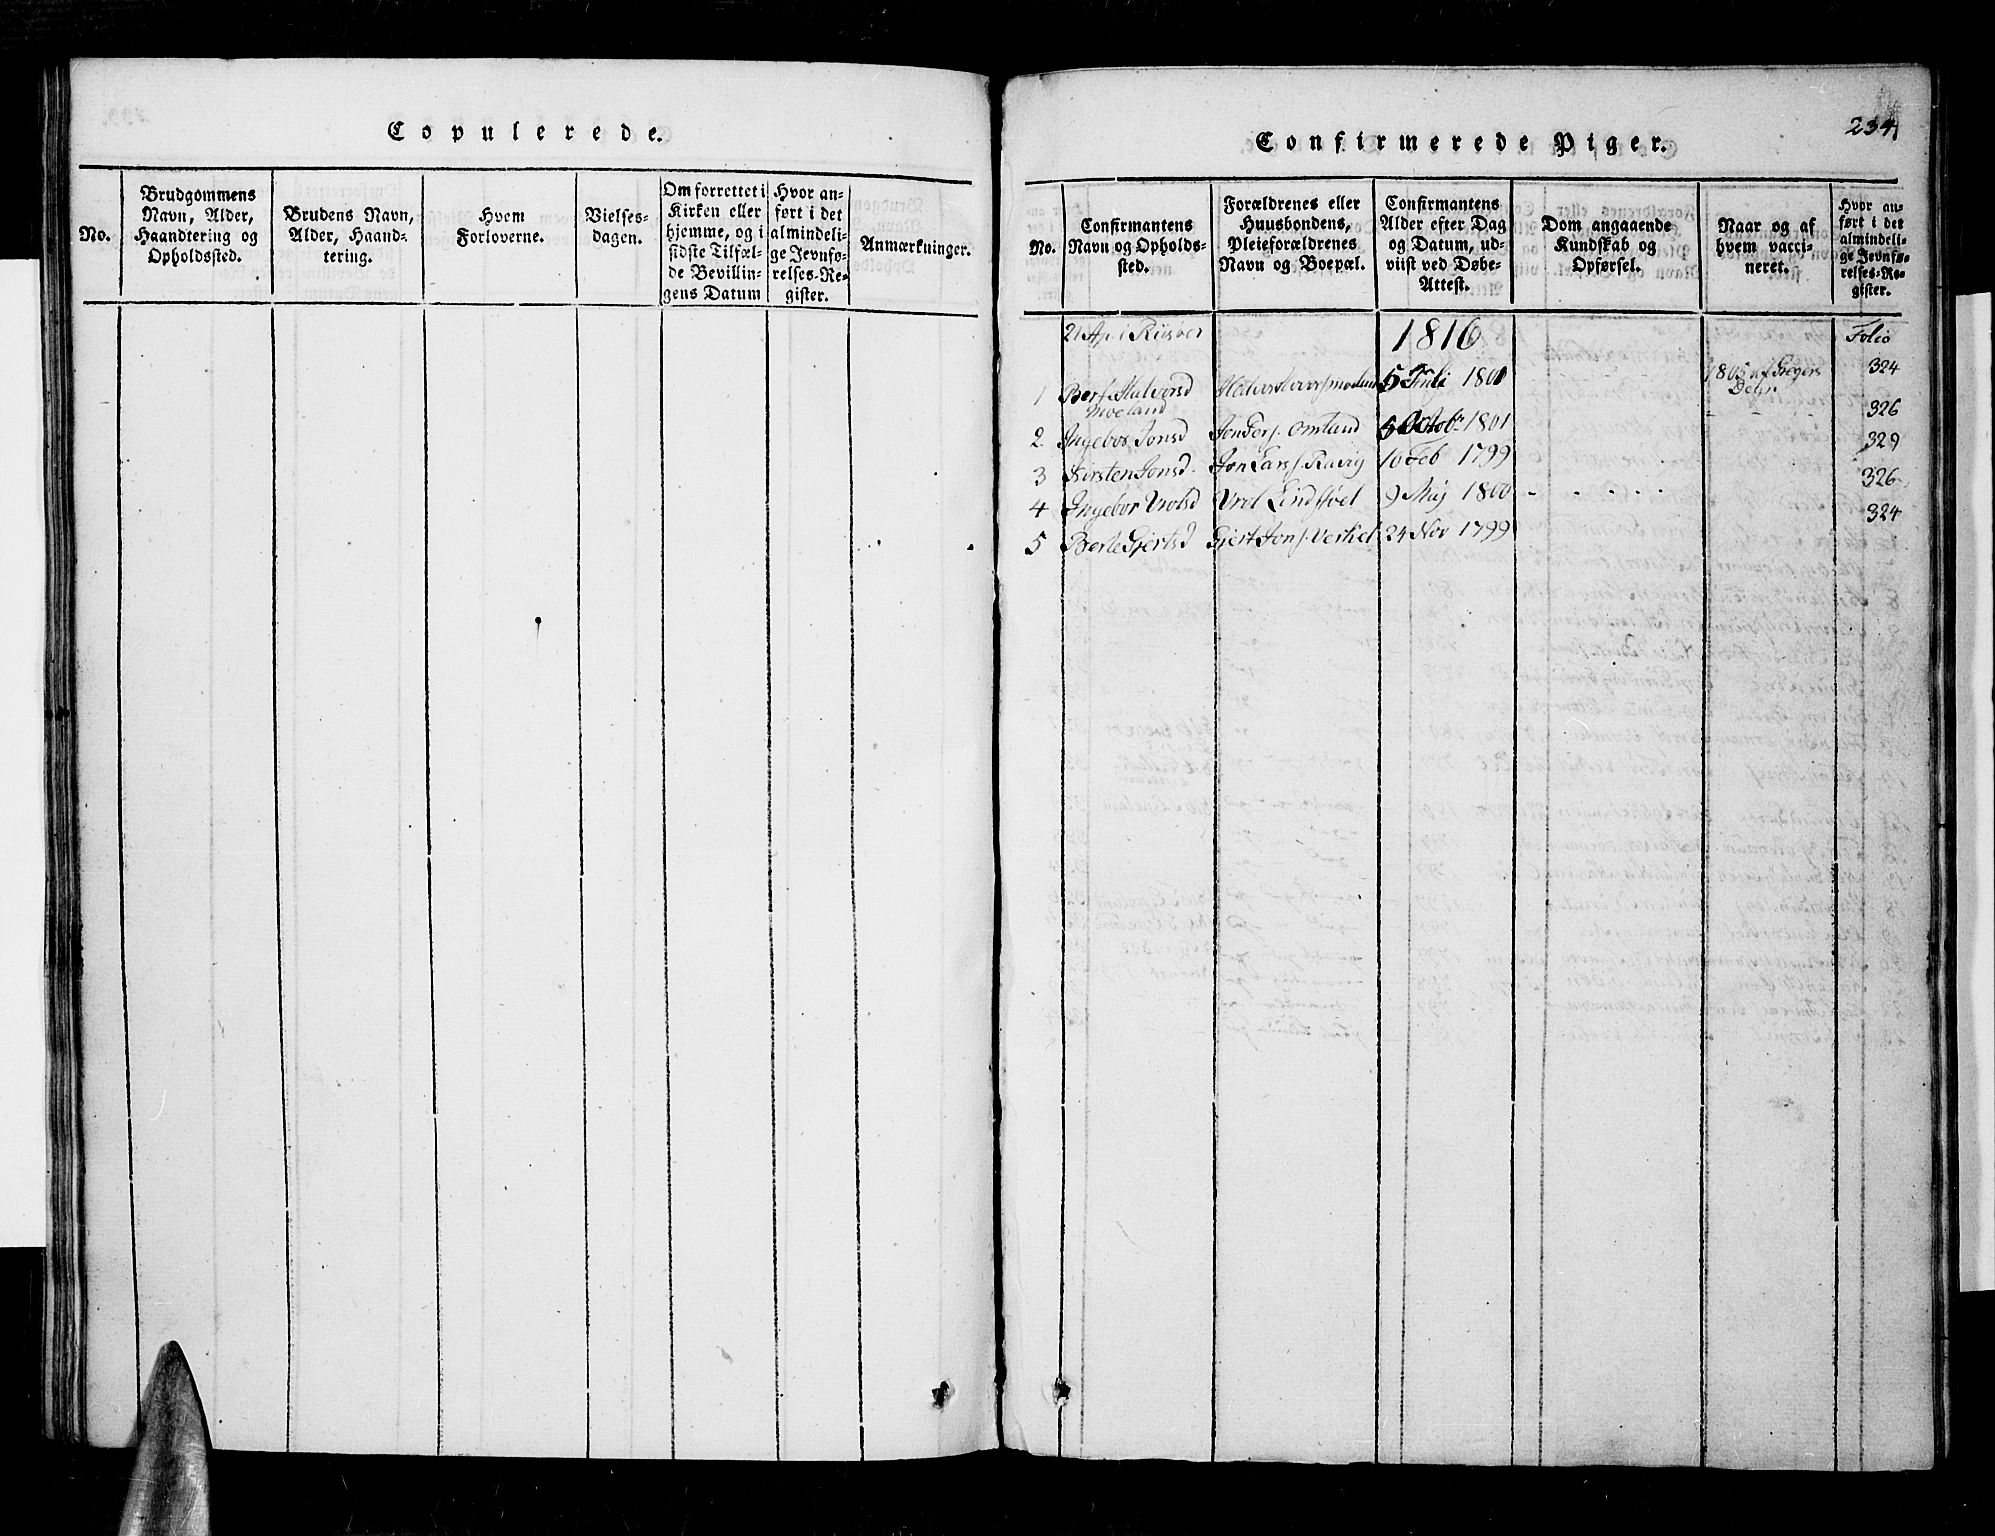 Copulerede.
No.
Brudgommens
Navn, Alder,
Haandtering og
Opholdssted.
Brudens Navn,
Alder, Haand-
tering.
Hvem
Forloverne.
Vielses-
dagen.
Om forrettet i
Kirken eller
hjemme, og i
sidste Tilfæl-
de Bevillin-
gens Datum
Hvor an-
ført i det
almindeli-
ge Jevnfø-
relses-Re-
gister.
Anmærkninger.
234
Confirmerede Piger.
No.
Confirmantens
Navn og Opholds-
sted.
Forældrenes eller
Huusbondens,
Pleieforældrenes
Navn og Boepæl.
Confirmantens
Alder efter Dag
og Datum, ud-
viist ved Døbe-
Attest.
Dom angaaende
Kundskab og
Opførsel.
Naar og af
hvem vacci-
neret.
Hvor an-
ført i det
almindeli-
ge Jevnfø-
relses-Re-
gister.
1816 Folio
1 Halvorsd 5 Juli 1801 1805 af 324
Moeland 326
2 Ingebor Jonsd Omland 5 Octob. 1801 329
3 Kirsten Jonsd. Jon Lars. Ravig 10 Feb 1799 326
4 Ingebor Vrolsd Vrol 9 Maj 1800 324
5 Berte Gjertsd Gjert Jons. Verhel 24 Nov 1799